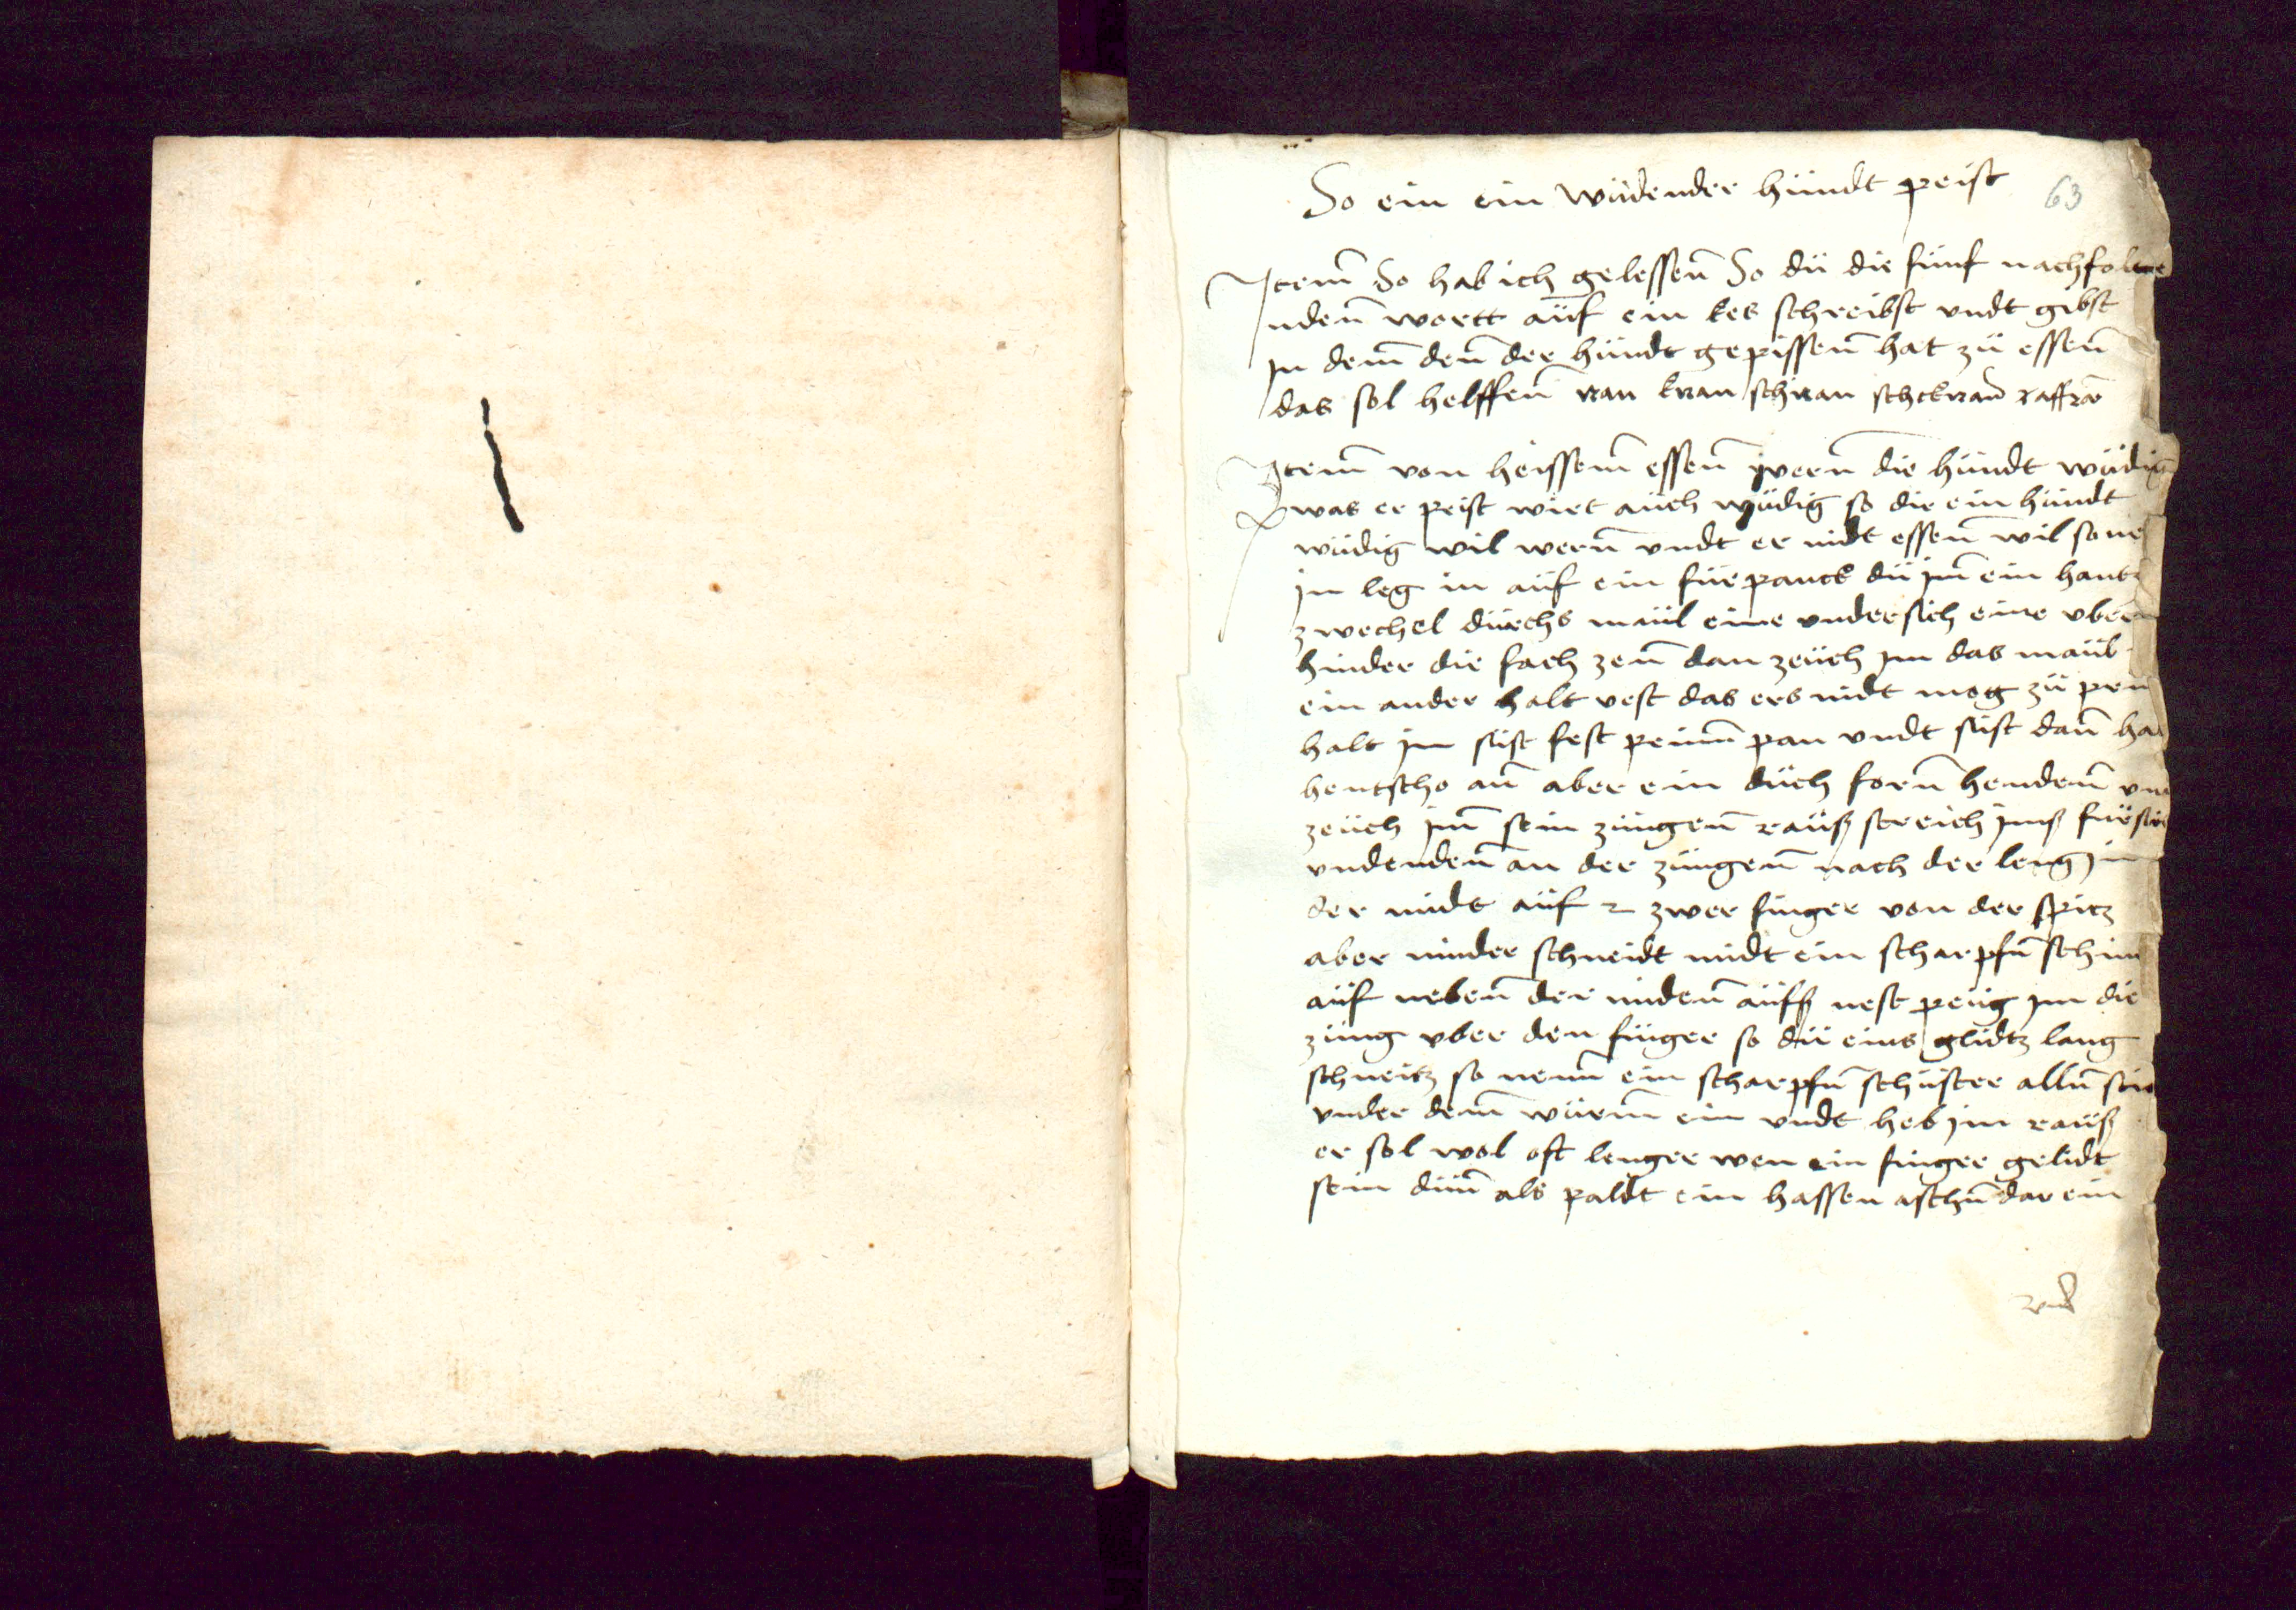 So ein ein wüdender hündt peist
63
Item So hab ich gelessen̄ So dü die fünf nachfol
nden̄ wortt aüf ein kes schreibst vndt gibst
in dem̄ den̄ der hündt gepissen̄ hat zü essen̄
das sol helffen̄ ran kran schran schckran̄ raffran
Item von heissem̄ essen̄ wern̄ die hündt wüdig
was er peist wirt aüch wüdig so dir ein hündt
wüdig wil wern̄ vndt er nidt essen̄ wil so
in leg in aüf ein fürpanck dü im̄ ein hant
zwechel dürchs maül eine vndersich eine vber
hinder die fach zen̄ dan zeüch im das maül
ein ander halt vest das ers nidt mog zü
halt im süst fest peinn pan vndt süst dan̄
hentscho an̄ aber ein düch forn̄ henden̄
zeüch im̄ sein züngen̄ raüß streich imß
vndenden̄ an der züngen̄ nach der leng in
der midt aüf 2 zwer finger von der spitz
aber minder schneidt midt ein scharpfn̄
aüf neben̄ der miden̄ aüfß nest peüg im die
züng vber den finger so dü eins glidtz lang
schneitz so nem̄ ein scharpfn̄ schüster alln̄
vnder dem̄ würm̄ ein vndt heb in raüß
er sol wol oft lenger wen ein finger gelidt
sein düm̄ als paldt ein hassen aschn̄ dar ein
vnd